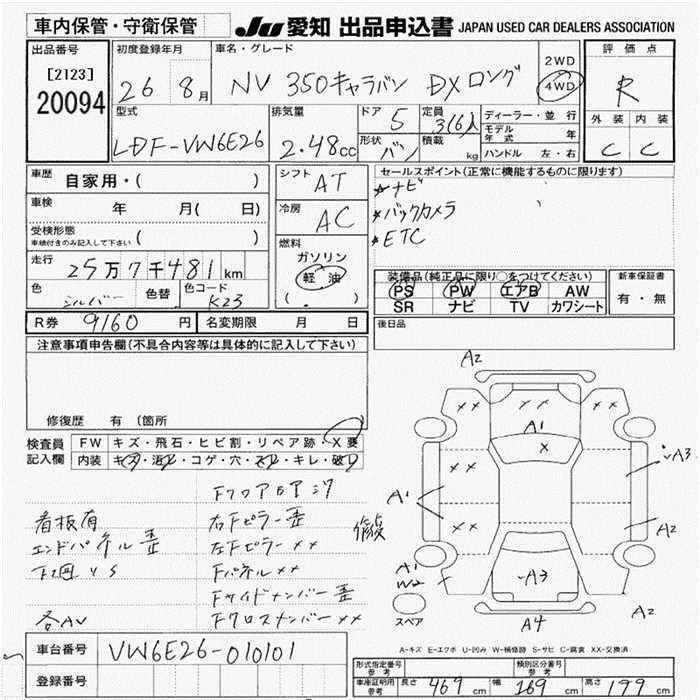 車内保管・守衛保管
JU 愛知 出品申込書 JAPAN USED CAR DEALERS ASSOCIATION
出品番号
[2123]
20094
初度登録年月
26 8月
車名・グレード
NV 350キャラバン DXロング
2WD
4WD
評価点
R
外装 内装
C C
型式
LDF-VW6E26
排気量
2.48cc
ドア 5
形状 バン
定員 3(6)人
積載 kg
ディーラー・並行
モデル年式 年
ハンドル 左・右
車歴 自家用・( )
車検 年 月( 日)
受検形態
車検付きのみ記入して下さい ( )
走行 25万7千481km
色 シルバー 色替 色コード K23
R券 9160円 名変期限 月 日
シフト AT
冷房 AC
燃料
ガソリン
軽油
( . )
セールスポイント(正常に機能するものに限ります)
*ナビ
*バックカメラ
*ETC
装備品(純正品に限り○をつけてください)
PS PW エアB AW
SR ナビ TV カワシート
新車保証書
有・無
後日品
注意事項申告欄(不具合内容等は具体的に記入して下さい)
修復歴 有 (箇所 )
検査員記入欄
FW キズ・飛石・ヒビ割・リペア跡・X要
内装 キズ・汚レ・コゲ・穴・スレ・キレ・破レ
看板有
エンドパネル歪
下廻りS
各AV
右Fピラー歪
左Fピラーxx
Fパネルxx
Fサイドメンバー歪
Fクロスメンバーxx
修復
A2
xx xx xx
A1
x
xx
A1
xx
A3
A2
A1
W2
A3
A4
A2
スペア
A-キズ E-エクボ U-凹み W-補修跡 S-サビ C-腐食 XX-交換済
車台番号 VW6E26-010101
登録番号
形式指定番号 参考
類別区分番号 参考
車庫証明用 参考 長さ 469cm 幅 169cm 高さ 199cm